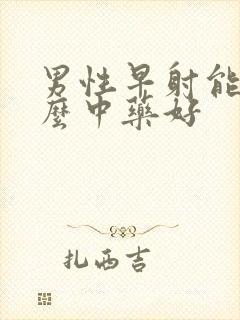 男性早射能
麼中藥好
扎西吉